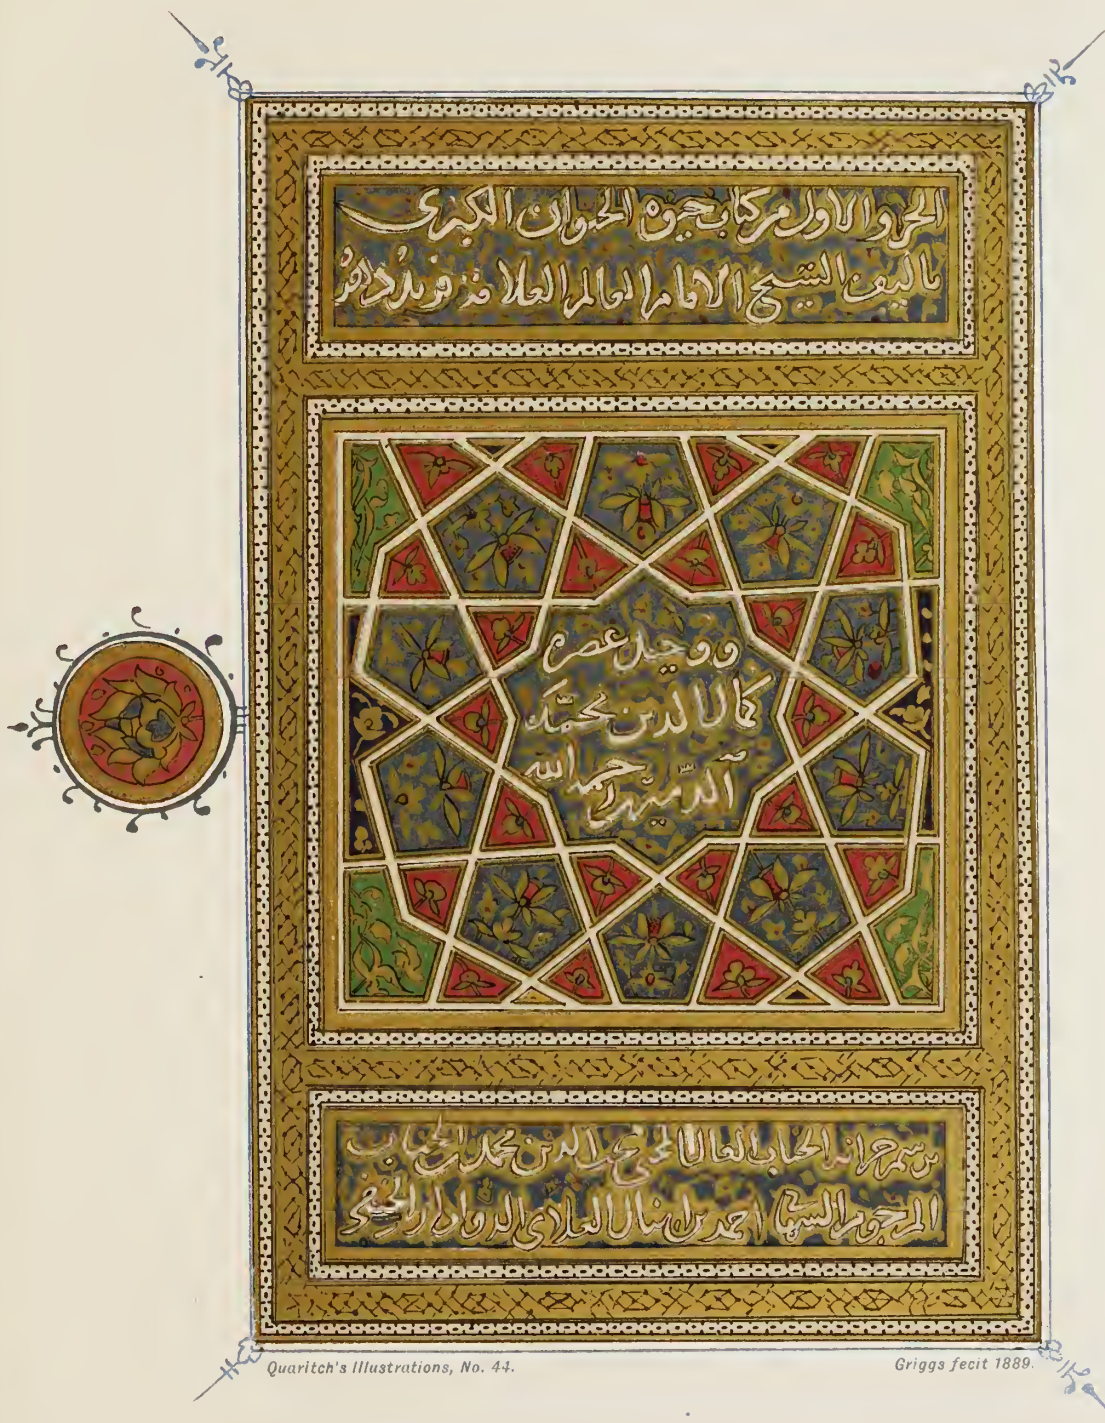 الجزو الاول من كتاب حيوة الحيوان الكبرى
تاليف الشيخ الامام العالم العلامة فريد دهره
ووحيد عصره
كمال الدين محمد
الدميرى رحمه الله
برسم خزانة الجناب العالى محب الدين محمد بن الجناب
المرحوم الشهابى احمد بن اينال العلاى الدوادار الحنفى
Quaritch's Illustrations, No. 44.
Griggs fecit 1889.